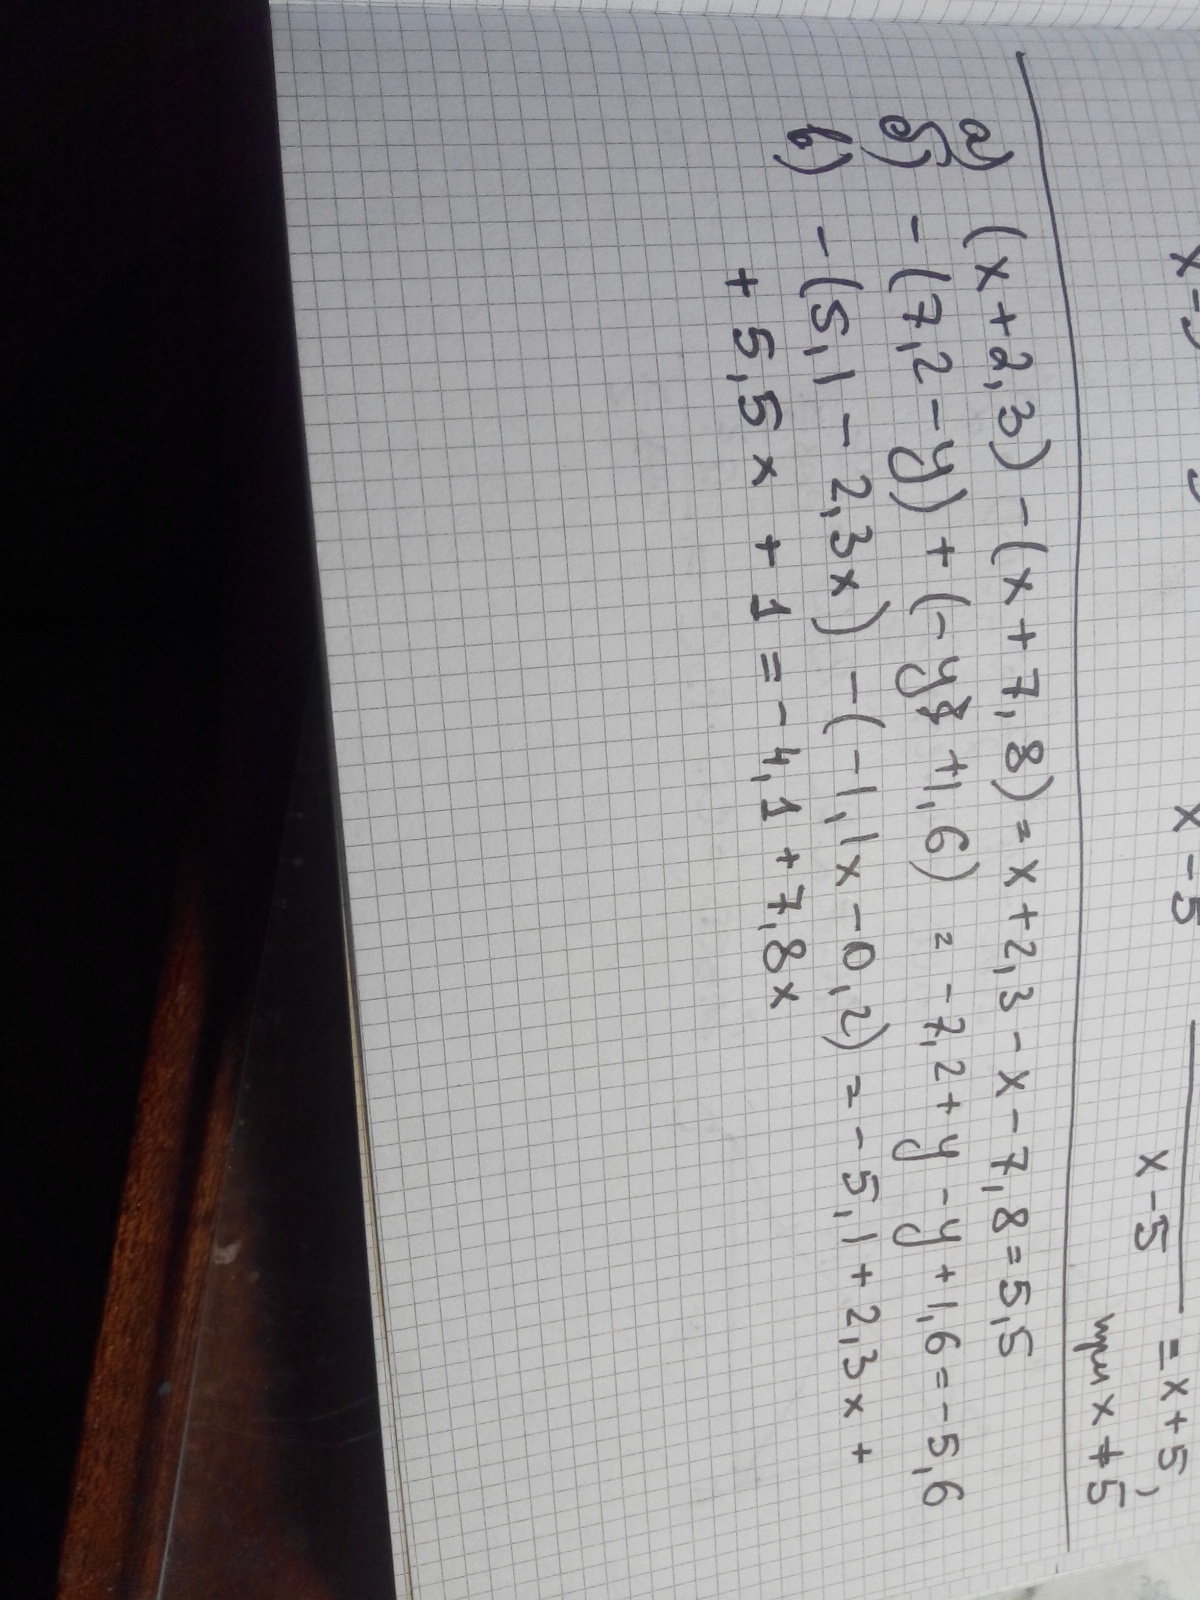 x-5
x-5
= x+5,
при x ≠ 5
а) (x+2,3) - (x+7,8) = x+2,3 - x - 7,8 = 5,5
б) - (7,2 - y) + (- y +1,6) = - 7,2 + y - y + 1,6 = - 5,6
в) - (5,1 - 2,3x) - (-1,1x - 0,2) = - 5,1 + 2,3x +
+ 5,5x + 1 = - 4,1 + 7,8x